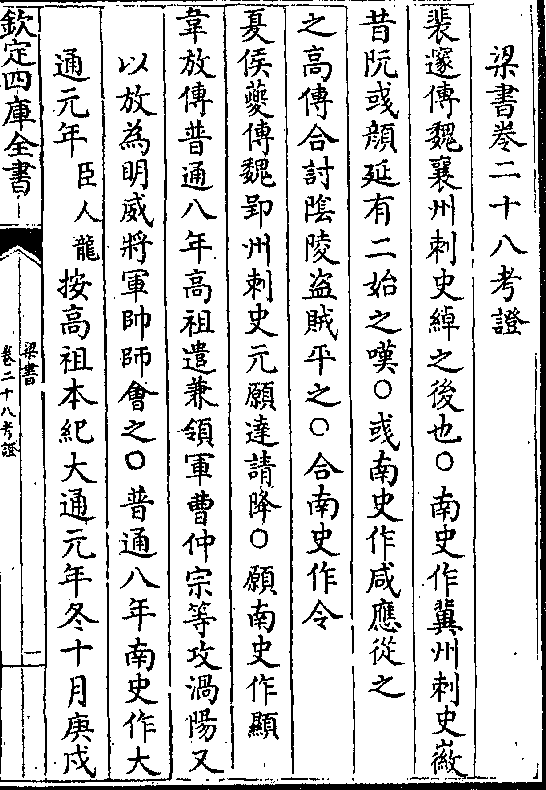 梁書卷二十八考證
裴邃傳魏襄州刺史綽之後也○南史作冀州刺史徽
昔阮彧顔延有二始之嘆○彧南史作咸應從之
之高傳合討陰陵盗賊平之○合南史作令
夏侯夔傳魏郢州刺史元願達請降○願南史作顯
韋放傳普通八年高祖遣兼領軍曹仲宗等攻渦陽又
以放為明威將軍帥師會之○普通八年南史作大
通元年臣人龍按高祖本紀大通元年冬十月庚戌
欽定四庫全書
梁書
卷二十八考證
一